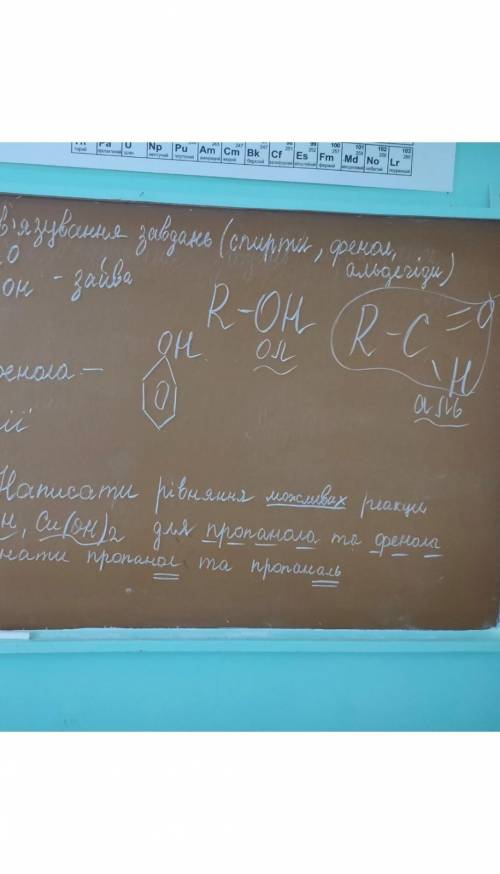 Np Pu Am Cm Bk Cf Es Fm Md No Lr
в'язування завдань (спирти, фенол,
альдегіди)
он - зайва
R-OH
ол
R-C=O
H
аль
OH
фенола -
ії
Написати рівняння можливих реакцій
н, Cu(OH)2 для пропанола та фенола
нати пропанол та пропаналь